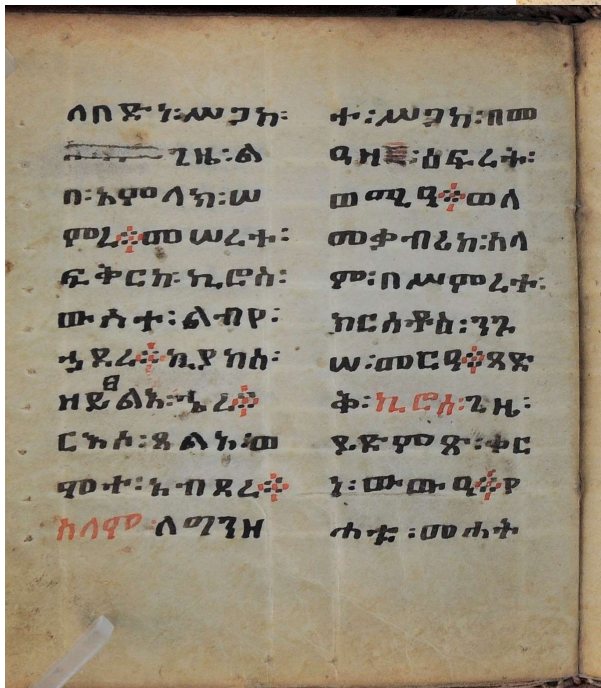 ለበድነ፡ሥጋከ፡
ጊዜ፡ል
በ፡አምላክ፡ሠ
ምረ፨መሠረተ፡
ፍቅርከ፡ኪሮስ፡
ውስተ፡ልብየ፡
ኀደረ፨ኪያከሰ፡
ዘይልአ፡ኄረ፨
ርእሶ፡ጸልአ፡ወ
ሞተ፡አብደረ፨
ሰላም፡ለማንዘ
ተ፡ሥጋከ፡በመ
ዓዛ፡ዕፍረት፡
ወሚዓ፨ወለ
መቃብሪከ፡ሰላ
ም፡በሥምረተ፡
ክርስቶስ፡ንጉ
ሠ፡መርዓ፨ጻድ
ቅ፡ኪሮስ፡ጊዜ፡
ይድምጽ፡ቀር
ነ፡ሙውዒ፨የ
ሐቱ፡መሐት